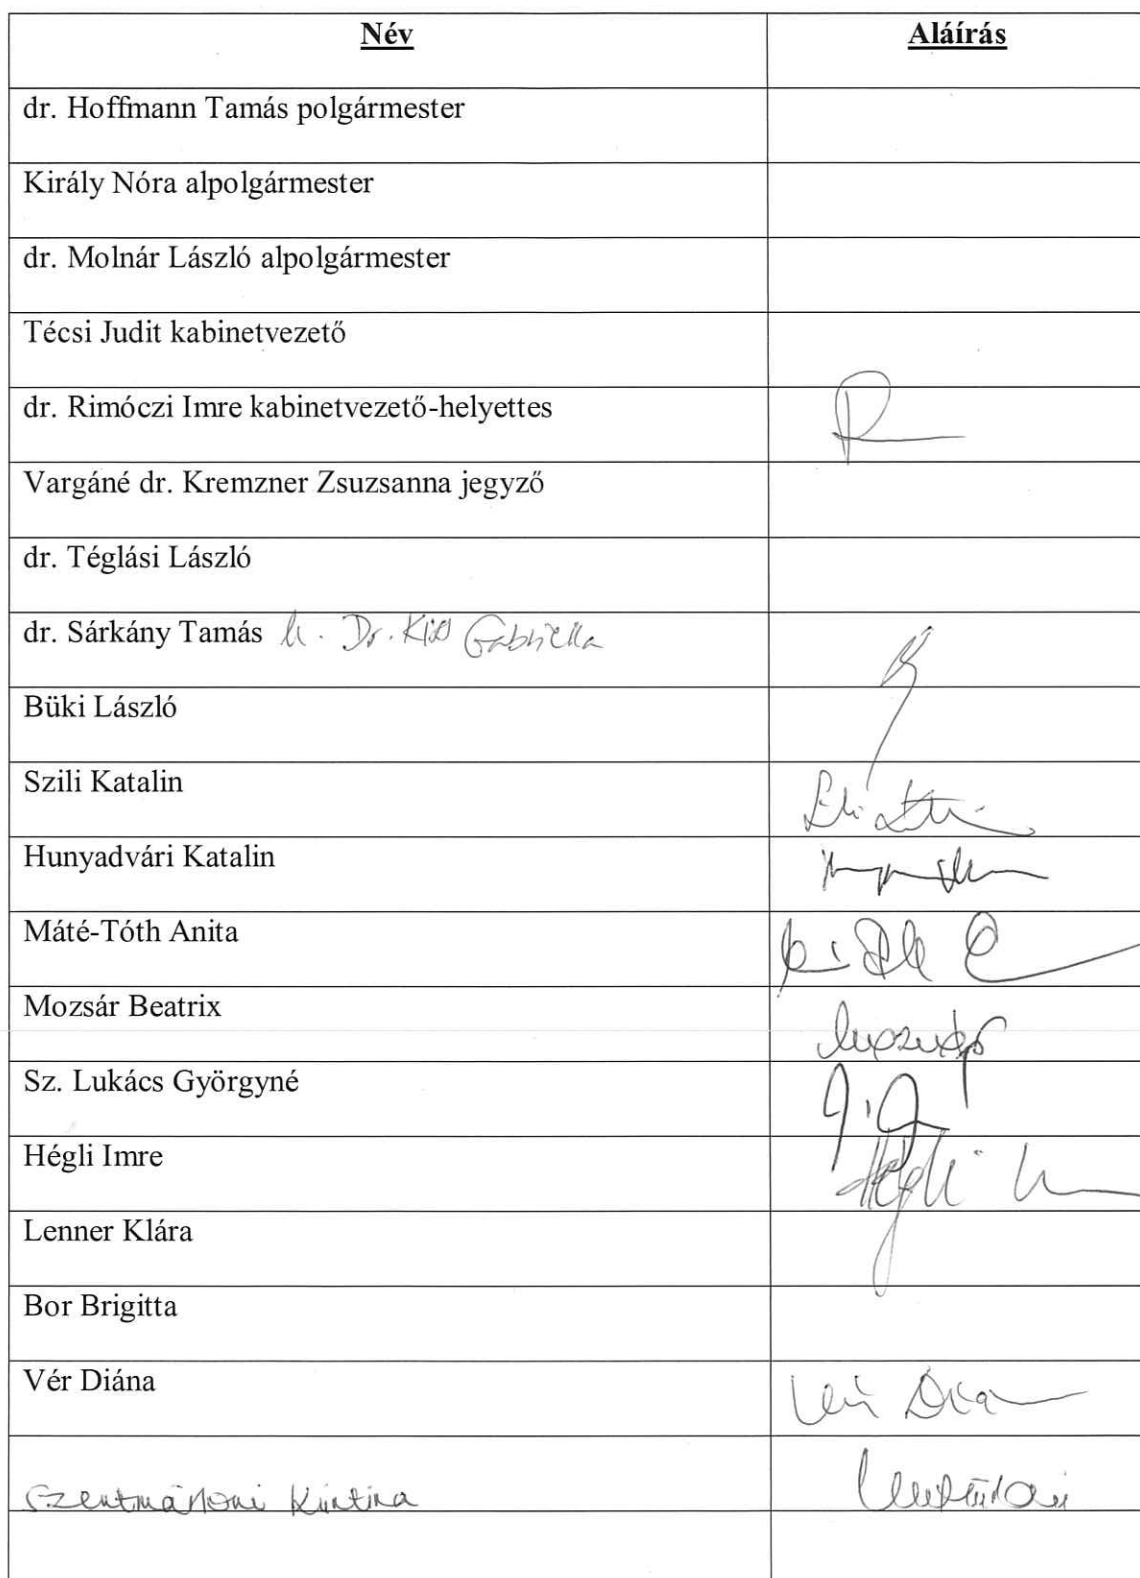 Név Aláírás
dr. Hoffmann Tamás polgármester
Király Nóra alpolgármester
dr. Molnár László alpolgármester
Técsi Judit kabinetvezető
dr. Rimóczi Imre kabinetvezető-helyettes
Vargáné dr. Kremzner Zsuzsanna jegyző
dr. Téglási László
dr. Sárkány Tamás h. Dr. Kiss Gabriella
Büki László
Szili Katalin
Hunyadvári Katalin
Máté-Tóth Anita
Mozsár Beatrix
Sz. Lukács Györgyné
Hégli Imre Hégli
Lenner Klára
Bor Brigitta
Vér Diána Vér
Szentmártoni Krisztina